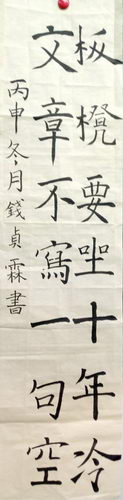 板櫈要坐十年冷
文章不寫一句空
丙申冬月錢貞霖書